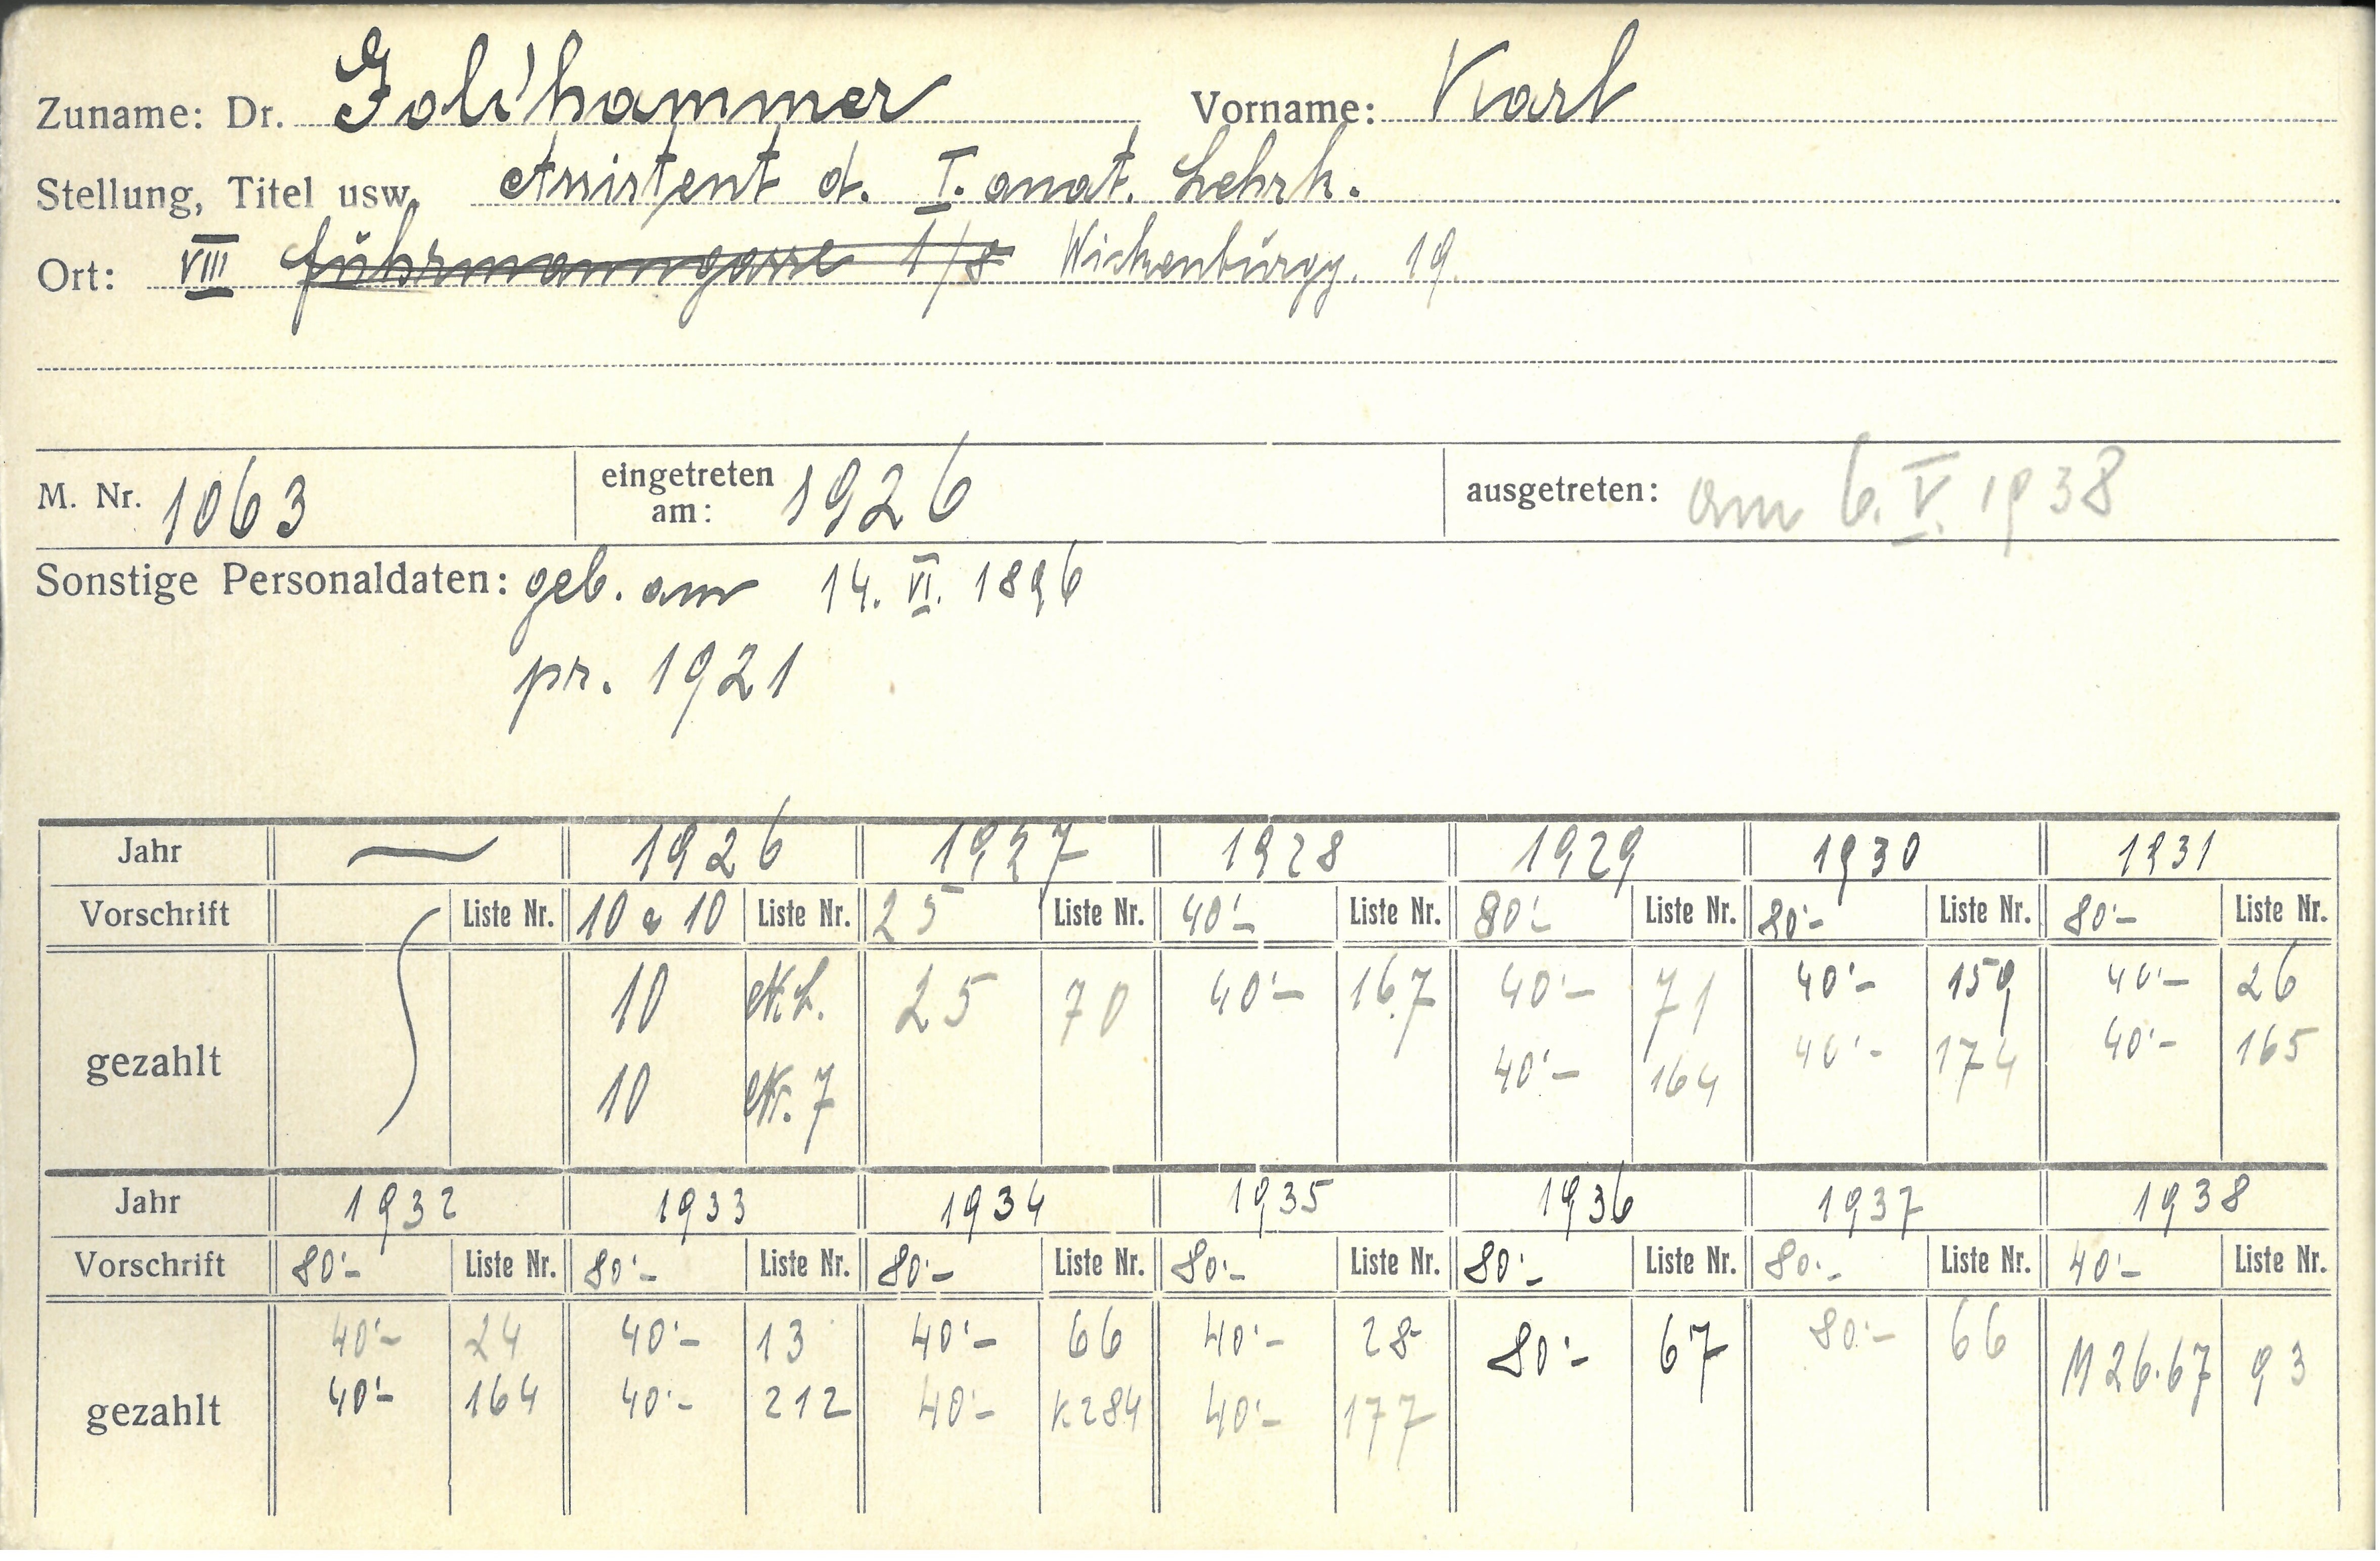 Zuname: Dr. Goldhammer Vorname: Karl
Stellung, Titel usw. Assistent d. I. anat. Lehrk.
Ort: VIII Fuhrmanngasse 1/8 Wickenburgg. 19.
M. Nr. 1063 eingetreten am: 1926 ausgetreten: am 6. V. 1938
Sonstige Personaldaten: geb. am 14. VI. 1896
pr. 1921
Jahr 1926 1927 1928 1929 1930 1931
Vorschrift Liste Nr. 10 a 10 Liste Nr. 25 Liste Nr. 40'- Liste Nr. 80'- Liste Nr. 80'- Liste Nr. 80'- Liste Nr.
gezahlt 10 25 70 40'- 167 40'- 71 40'- 159 40'- 26
10 Nr. 7 40'- 164 40'- 174 40'- 165
Jahr 1932 1933 1934 1935 1936 1937 1938
Vorschrift 80'- Liste Nr. 80'- Liste Nr. 80'- Liste Nr. 80'- Liste Nr. 80'- Liste Nr. 80'- Liste Nr. 40'- Liste Nr.
gezahlt 40'- 24 40'- 13 40'- 66 40'- 28 80'- 67 80'- 66 M 26.67 93
40'- 164 40'- 212 40'- K 284 40'- 177